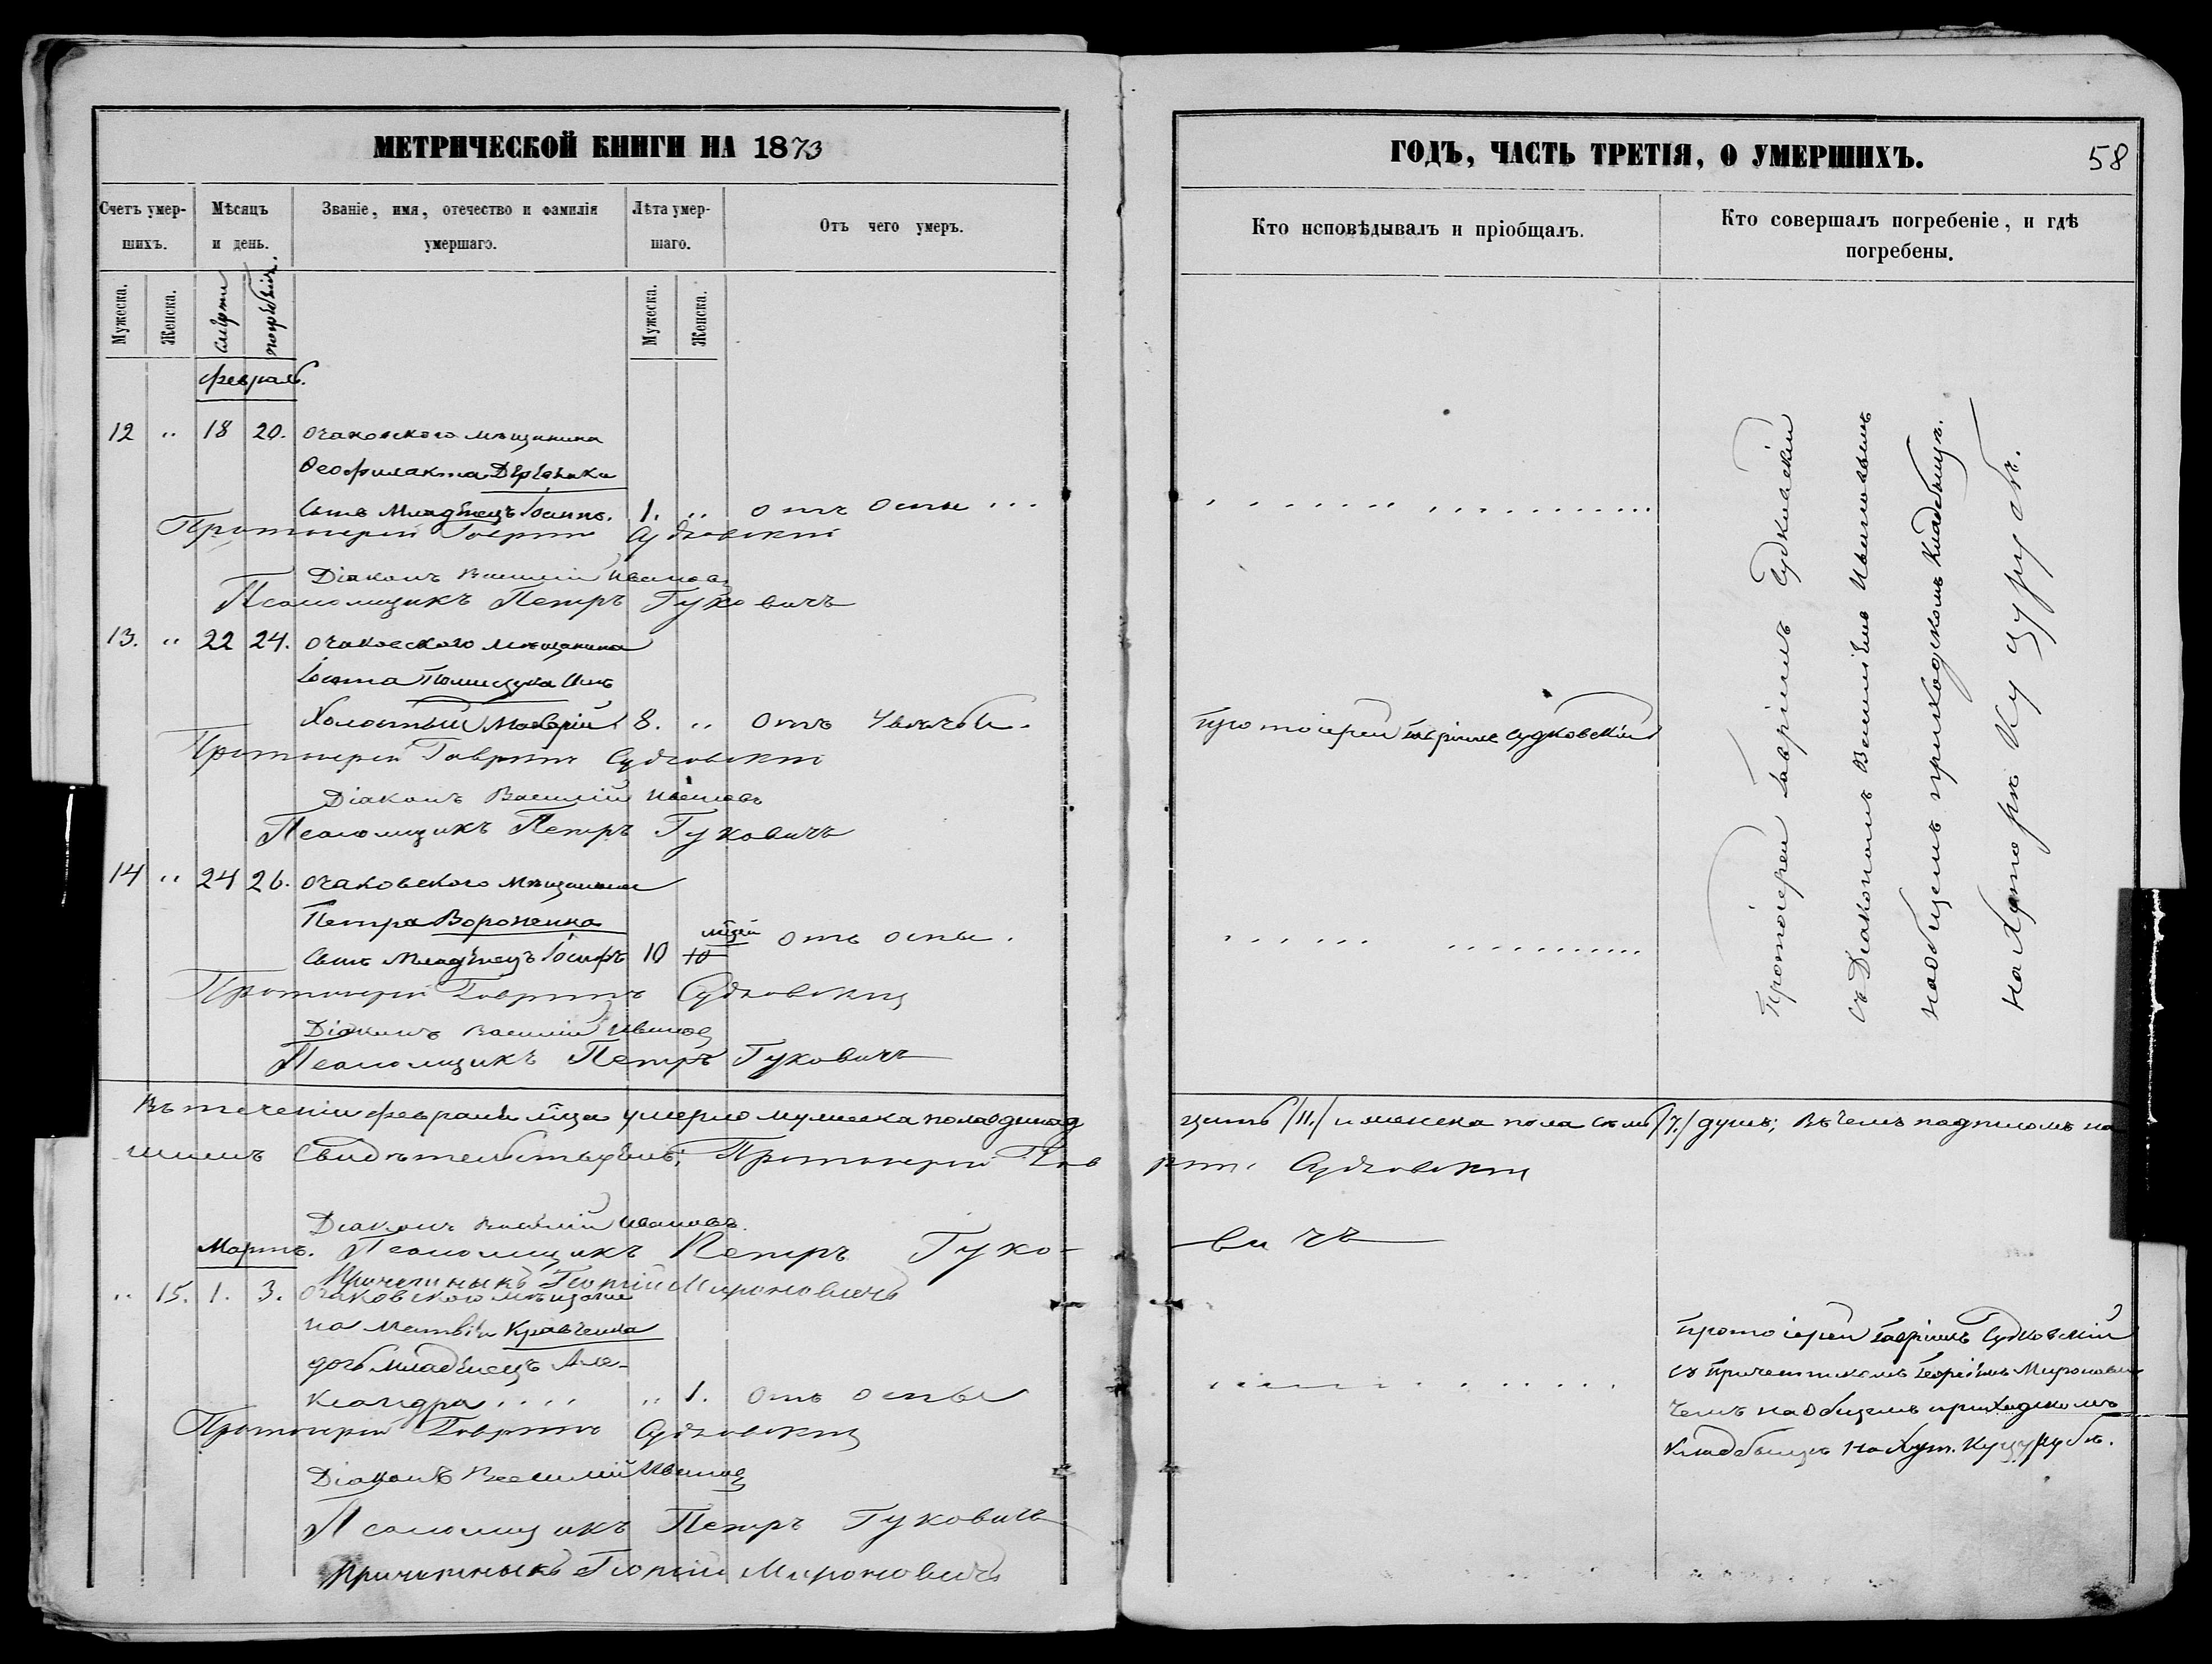 МЕТРИЧЕСКОЙ КНИГИ НА 1873
Счетъ умер-
шихъ.
Мѣсяцъ
и день.
Званіе, имя, отечество и фамилія
умершаго.
Лѣта умер-
шаго.
Отъ чего умеръ.
Мужеска.
Женска.
смерти
погребенія.
Мужеска.
Женска.
Февраль.
12 " 18 20. Очаковскаго мѣщанина
Феофилакта
Сынъ Младенецъ Іосифъ. 1. " отъ оспы ...
Протоіерей Гавріилъ Судковскій
Діаконъ Василій Ивановъ
Псаломщикъ Петръ Гуковичъ
13. " 22 24. Очаковскаго мѣщанина
Полищука сынъ
Холостый 8. " отъ
Протоіерей Гавріилъ Судковскій
Діаконъ Василій Ивановъ
Псаломщикъ Петръ Гуковичъ
14 " 24 26. Очаковскаго мѣщанина
Петра Вороненка
Сынъ Младенецъ Іосифъ 10 мѣсяцей отъ оспы.
Протоіерей Гавріилъ Судковскій
Діаконъ Василій Ивановъ
Псаломщикъ Петръ Гуковичъ
Въ теченіи февраля мѣсца умерло мужеска пола одинад
шимъ свидѣтельствуемъ: Протоіерей Гав
Діаконъ Василій Ивановъ.
Мартъ. Псаломщикъ Петръ Гуко-
Причетникъ Георгій Мироновичъ
" 15. 1. 3. Очаковскаго мѣщани
на Матвія Кравченка
дочь Младенецъ Але-
ксандра .... " 1. отъ оспы
Протоіерей Гавріилъ Судковскій
Діаконъ Василій Ивановъ
Псаломщикъ Петръ Гуковичъ
Причетникъ Георгій Мироновичъ
ГОДЪ, ЧАСТЬ ТРЕТІЯ, О УМЕРШИХЪ. 58
Кто исповѣдывалъ и пріобщалъ.
Кто совершалъ погребеніе, и гдѣ
погребены.
Протоіерей Гавріилъ Судковскій
Протоіерей Гавріилъ Судковскій
съ Діакономъ Василіемъ Ивановымъ
на общемъ приходскомъ кладбищѣ.
на Хуторѣ Куцурубѣ.
цать /11./ и женска пола семь /7./ душъ; въ чемъ подписомъ на
ріилъ Судковскій
вичъ
Протоіерей Гавріилъ Судковскій
съ Причетникомъ Георгіемъ Миронови
чемъ на общемъ приходскомъ
кладбищѣ на хут. Куцурубѣ.